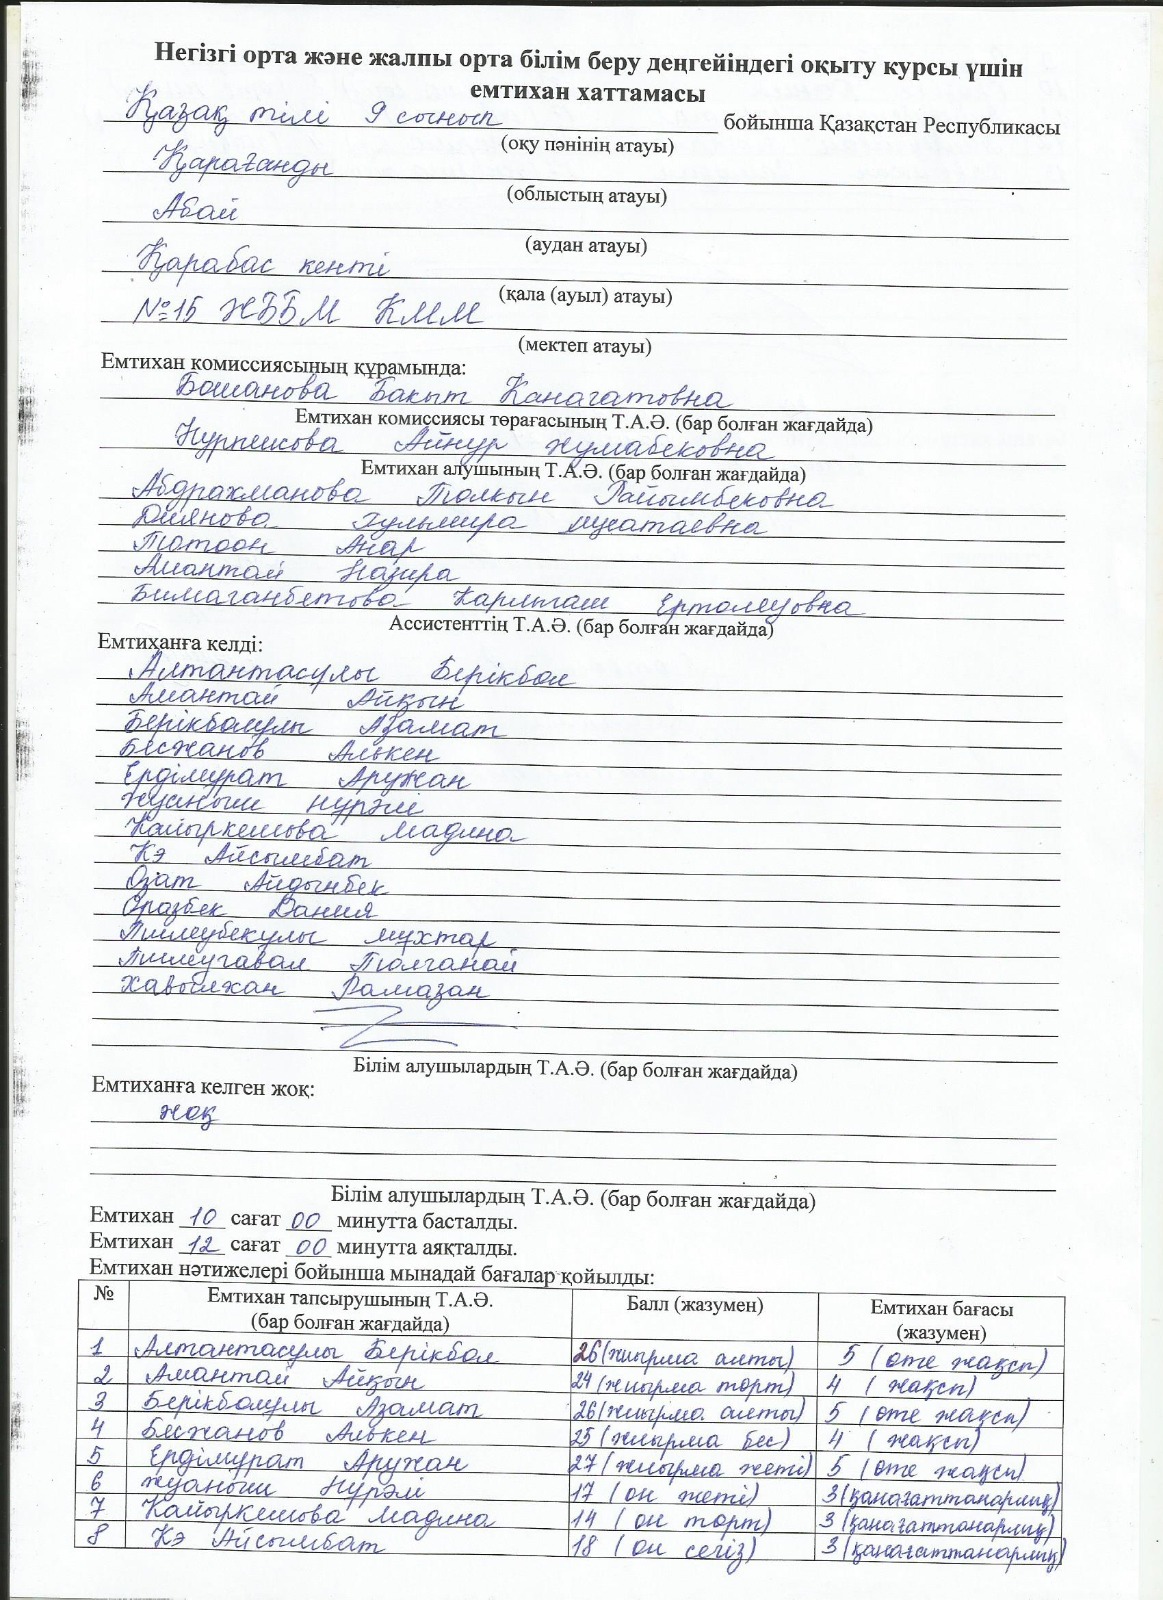 Негізгі орта және жалпы орта білім беру деңгейіндегі оқыту курсы үшін
емтихан хаттамасы
Қазақ тілі 9 сынып бойынша Қазақстан Республикасы
(оқу пәнінің атауы)
Қарағанды
(облыстың атауы)
Абай
(аудан атауы)
Қарабас кенті
(қала (ауыл) атауы)
№15 ЖББМ КММ
(мектеп атауы)
Емтихан комиссиясының құрамында:
Бошанова Бакыт Канагатовна
Емтихан комиссиясы төрағасының Т.А.Ә. (бар болған жағдайда)
Нурпешова Айнур Жумабековна
Емтихан алушының Т.А.Ә. (бар болған жағдайда)
Абдрахманова Толкын Райымбековна
Диянова Гульмира
Анар
Амантай Назира
Бимаганбетова Карлыгаш
Ассистенттің Т.А.Ә. (бар болған жағдайда)
Емтиханға келді:
Алтантасұлы Берікбол
Амантай Айқын
Берікболұлы Азамат
Бесжанов Алькен
Ердімурат Аружан
Жуаныш Нұрәлі
Кайыркешова Мадина
Кэ Айсымбат
Озат Айдынбек
Оразбек Дания
Тілеубекұлы Мұхтар
Толғанай
Рамазан
Білім алушылардың Т.А.Ә. (бар болған жағдайда)
Емтиханға келген жоқ:
жоқ
Білім алушылардың Т.А.Ә. (бар болған жағдайда)
Емтихан 10 сағат 00 минутта басталды.
Емтихан 12 сағат 00 минутта аяқталды.
Емтихан нәтижелері бойынша мынадай бағалар қойылды:
№ Емтихан тапсырушының Т.А.Ә. (бар болған жағдайда) Балл (жазумен) Емтихан бағасы (жазумен)
1 Алтантасұлы Берікбол 26 (жиырма алты) 5 (өте жақсы)
2 Амантай Айқын 24 (жиырма төрт) 4 (жақсы)
3 Берікболұлы Азамат 26 (жиырма алты) 5 (өте жақсы)
4 Бесжанов Алькен 25 (жиырма бес) 4 (жақсы)
5 Ердімурат Аружан 27 (жиырма жеті) 5 (өте жақсы)
6 Жуаныш Нұрәлі 17 (он жеті) 3 (қанағаттанарлық)
7 Кайыркешова Мадина 14 (он төрт) 3 (қанағаттанарлық)
8 Кэ Айсымбат 18 (он сегіз) 3 (қанағаттанарлық)